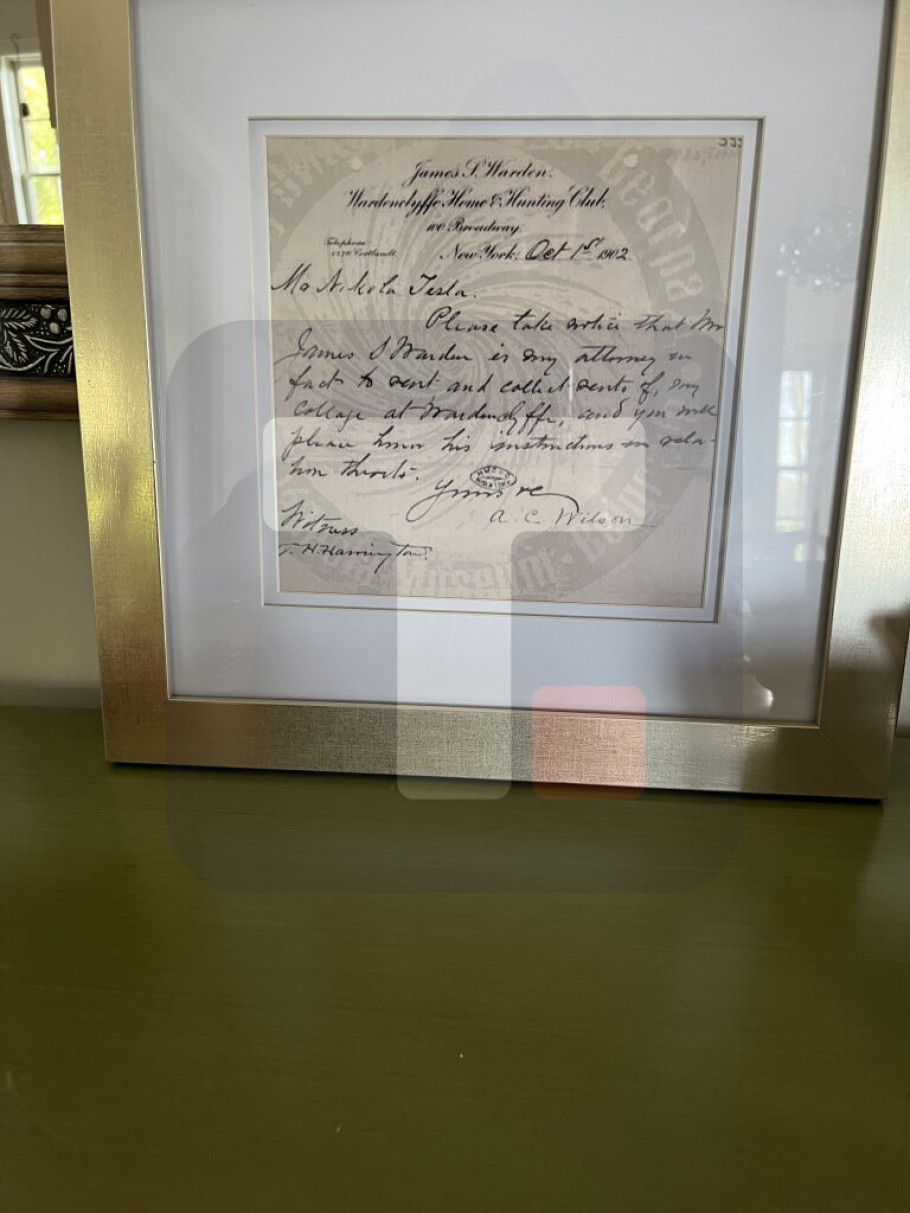 James S. Warden.
Wardenclyffe Home & Hunting Club.
100 Broadway.
Telephone
New York, Oct 1st 1902
Mr Nikola Tesla.
Please take notice that Mr
James S Warden is my attorney in
fact to rent and collect rents of, my
Cottage at Wardenclyffe, and you will
please honor his instructions in rela-
tion thereto.
Yours re
A. C. Wilson
Witness
T. H. Harrington.